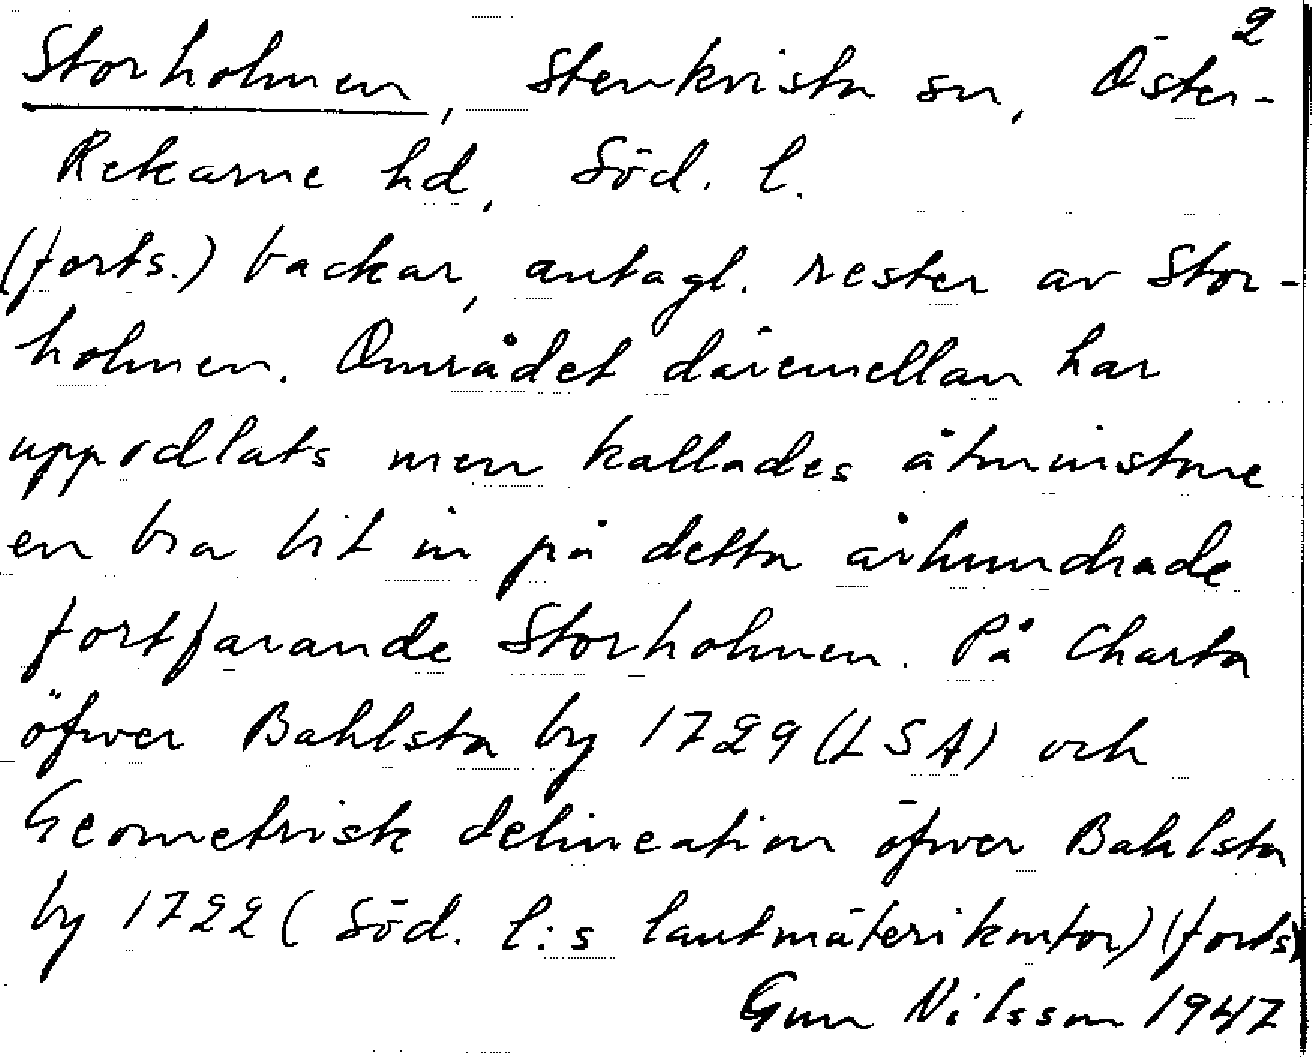 2
Storholmen, Stenkvista sn, Öster-
Rekarne hd, Söd. l.
(forts.) backar, antagl. rester av Stor-
holmen. Området däremellan har
uppodlats men kallades åtminstone
en bra bit in på detta århundrade
fortfarande Storholmen. På Charta
öfwer Bahlsta by 1729 (LSA) och
Geometrisk delineation öfwer Bahlsta
by 1722 (Söd. l:s lantmäterikontor) (forts)
Gun Nilsson 1947